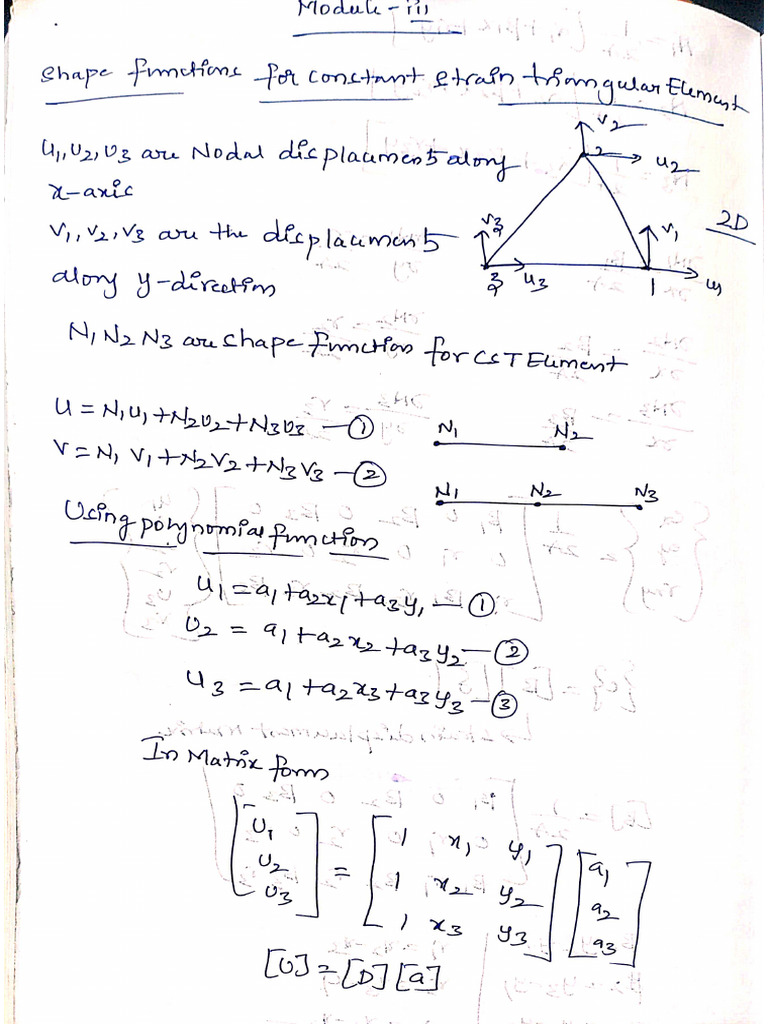 Module - iii
Shape functions for constant strain triangular Element
U1, U2, U3 are Nodal displacements along
x-axis
V1, V2, V3 are the displacements
along y-direction
V2
2
U2
V3
3
U3
V1
1
U1
2D
N1 N2 N3 are shape function for CST Element
U = N1U1 + N2U2 + N3U3 — ①
V = N1 V1 + N2V2 + N3V3 — ②
N1 N2
N1 N2 N3
Using polynomial function
U1 = a1 + a2x1 + a3y1 — ①
U2 = a1 + a2x2 + a3y2 — ②
U3 = a1 + a2x3 + a3y3 — ③
In Matrix form
[U1 U2 U3] = [1 x1 y1 1 x2 y2 1 x3 y3] [a1 a2 a3]
[U] = [D] [a]